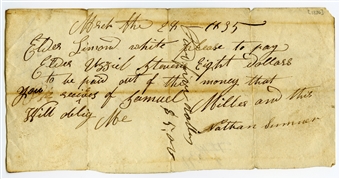 March the 28 1835
Elder Simond white please to pay
Elder Uzziel Stevens Eight Dollars
to be paid out of the money that
you recieve of Samuel Miller and this
Will oblig Me Nathan Sumner